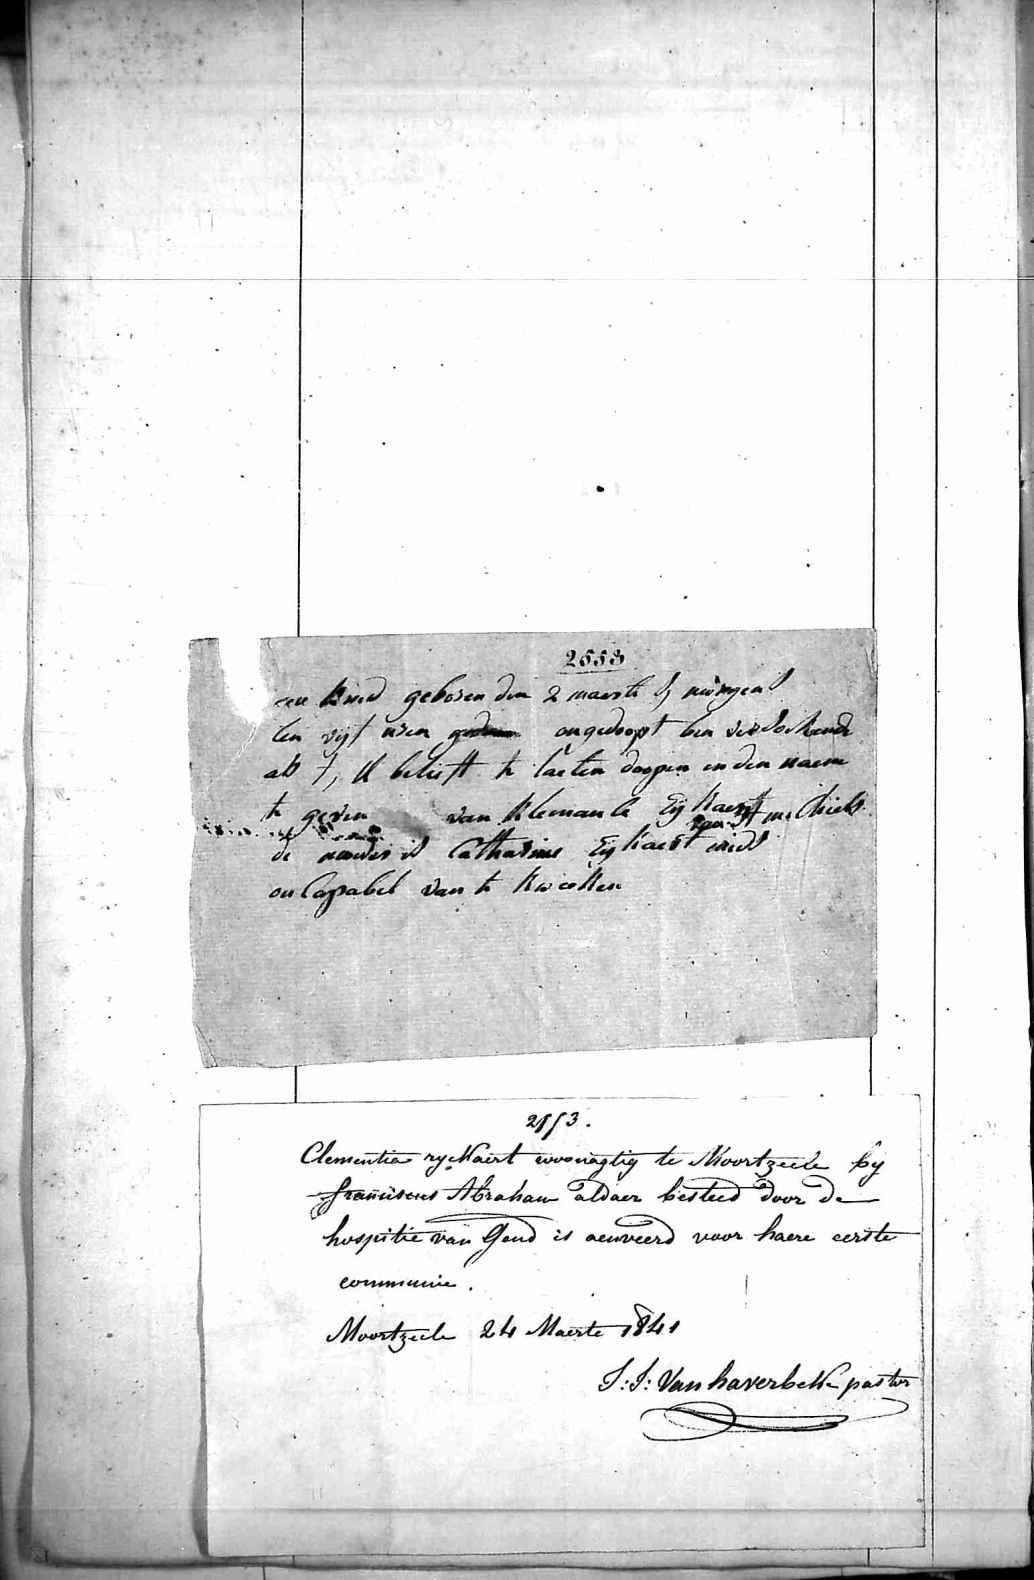 2553
een kind geboren den 2 maerte s, morgens
ten vijf uren ongedoopt ben versoekende
als , U belieft te laeten doopen en den naem
te geven van Klemance Eykaert
michiels
de moeder is Catharine Eykaert
onCapabel van te kweeken
2553.
Clementia ryckaert woonagtig te Moortzeele by
franciscus Abraham aldaer besteed door de
hospitie van Gend is aenveerd voor haere eerste
communie.
Moortzeele 24 Maerte 1841
J: J: Van haverbekke pastor